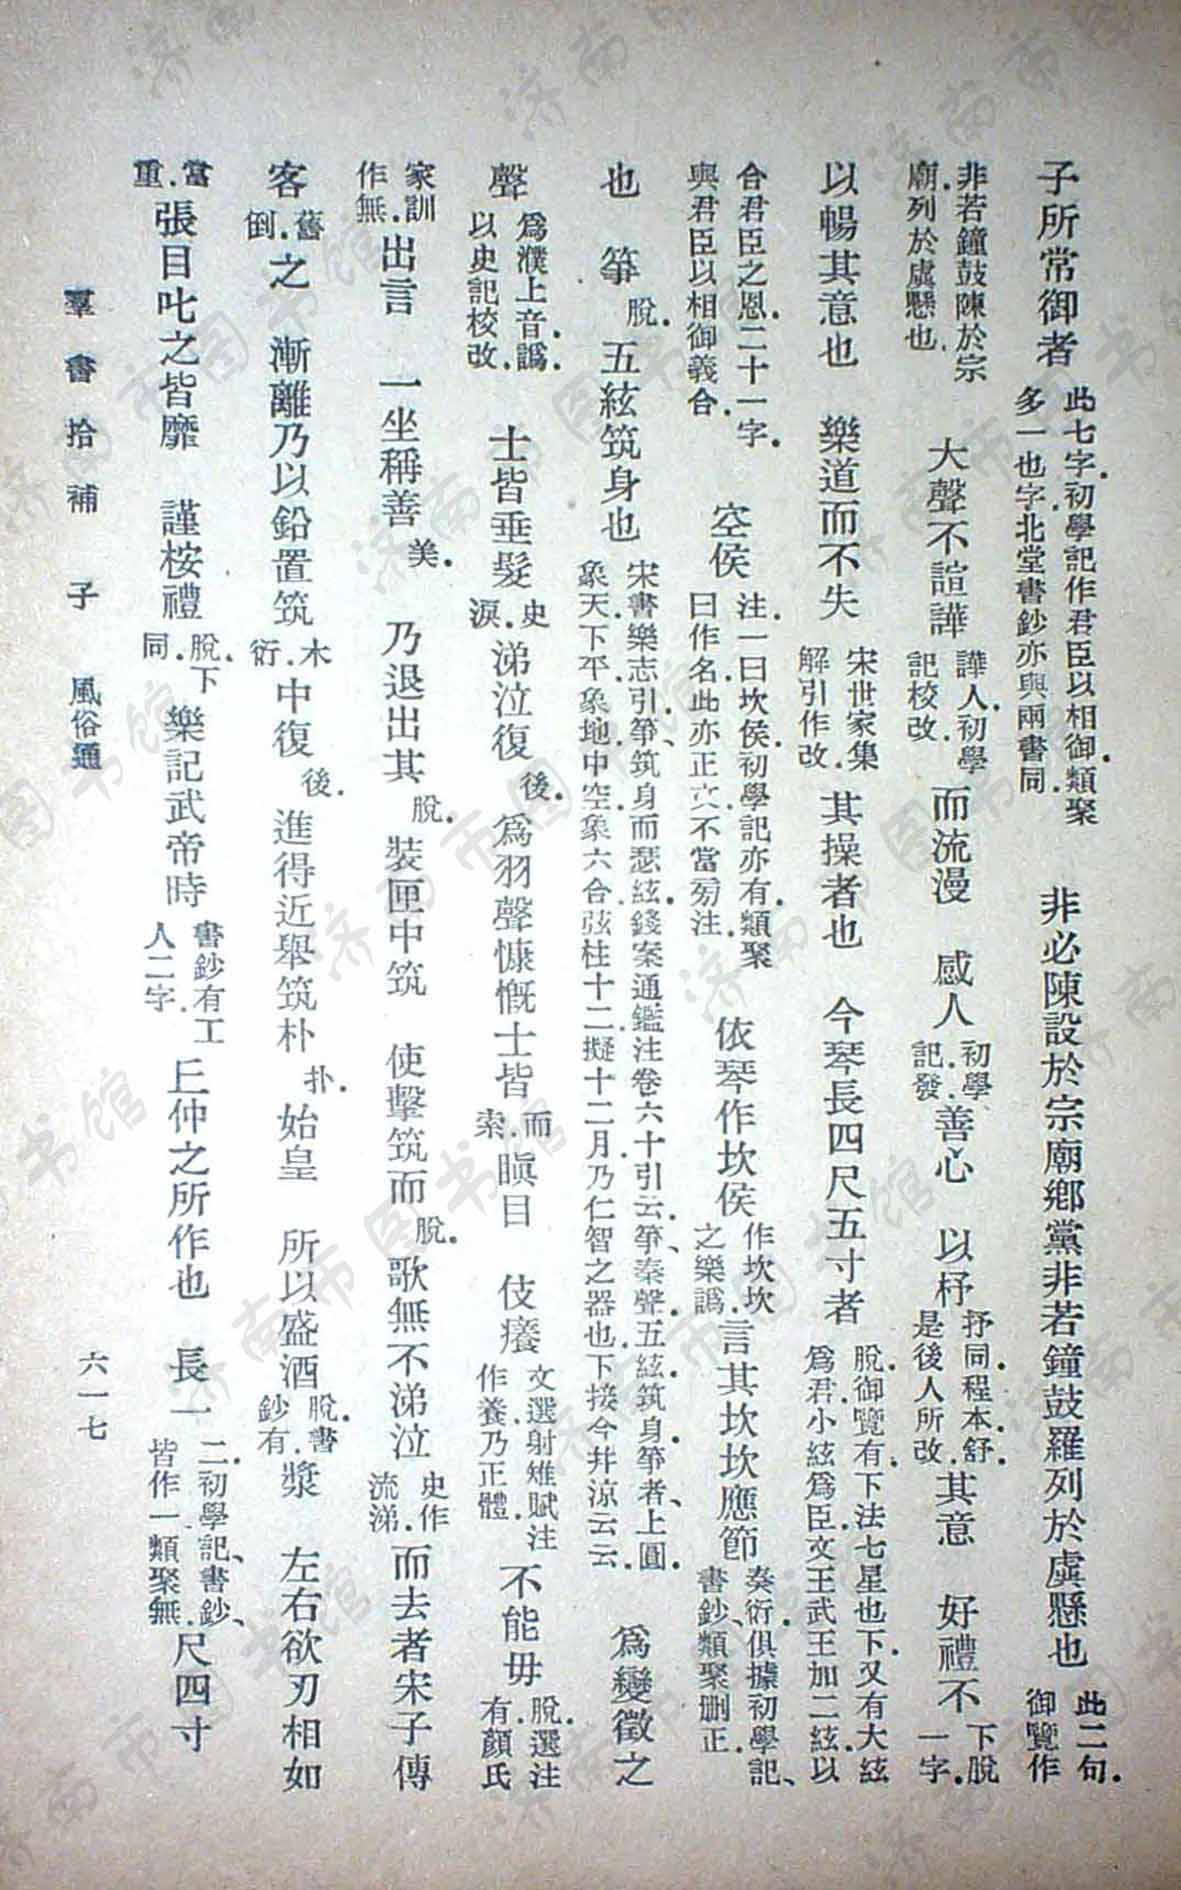 子所常御者此七字.初學記作君臣以相御.類聚多一也字.北堂書鈔亦與兩書同.非必陳設於宗廟鄉黨非若鐘鼓羅列於虡懸也此二句.御覽作
非若鐘鼓陳於宗廟.列於虡懸也.大聲不諠譁譁人.初學記校改.而流漫　感人初學記.發.善心　以杼抒同.程本.舒.是後人所改.其意　好禮不下脫一字.
以暢其意也　樂道而不失宋世家集解引作改.其操者也　今琴長四尺五寸者脫.御覽有.下法七星也下.又有大絃爲君.小絃爲臣.文王武王加二絃.以
合君臣之恩.二十一字.與君臣以相御義合.空侯注.一曰坎侯.初學記亦有.類聚曰作名.此亦正文.不當㫄注.依琴作坎侯作坎坎之樂.譌.言其坎坎應節奏衍.俱據初學記、書鈔、類聚刪正.
也　箏脫.五絃筑身也宋書樂志引.箏、筑身而瑟絃.錢案通鑑注卷六十引云.箏、秦聲.五絃.筑身.箏者、上圓.象天.下平.象地.中空.象六合.弦柱十二.擬十二月.乃仁智之器也.下接今井涼云云.爲變徵之
聲爲濮上音.譌.以史記校改.士皆垂髮史.淚.涕泣復後.爲羽聲慷慨士皆而.索.瞋目　伎癢文選射雉賦注作養.乃正體.不能毋脫.選注有.顏氏
家訓作無.出言　一坐稱善美.乃退出其脫.裝匣中筑　使擊筑而脫.歌無不涕泣史作流涕.而去者宋子傳
客舊倒.之　漸離乃以鉛置筑木.衍.中復後.進得近舉筑朴扑.始皇　所以盛酒脫.書鈔有.漿　左右欲刃相如
當重.張目叱之皆靡　謹桉禮脫.下同.樂記武帝時書鈔有工人二字.丘仲之所作也　長一二.初學記、書鈔、皆作一.類聚無.尺四寸
羣書拾補　子　風俗通　六一七